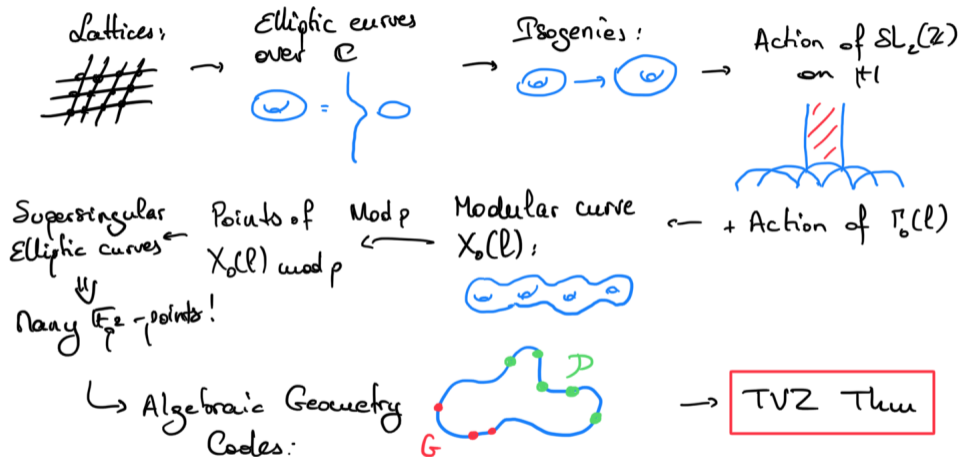 Lattices:
Elliptic curves
over ℂ
Isogenies:
Action of SL₂(ℤ)
on ℍ
=
+ Action of Γ₀(ℓ)
Modular curve
X₀(ℓ):
Mod p
Points of
X₀(ℓ) mod p
Supersingular
Elliptic curves
Many 𝔽p² -points!
Algebraic Geometry
Codes:
G
D
TVZ Thm